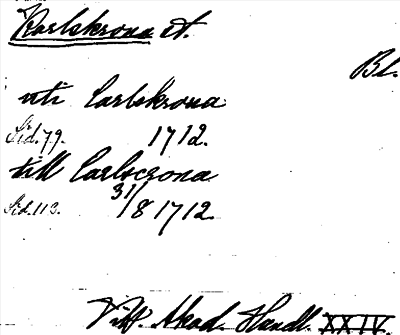 Karlskrona st.
Bl.
uti Carlskrona
Sid. 79. 1712.
till Carlscrona
Sid. 113. 31/8 1712.
Vitt. Akad. Handl. XXIV.